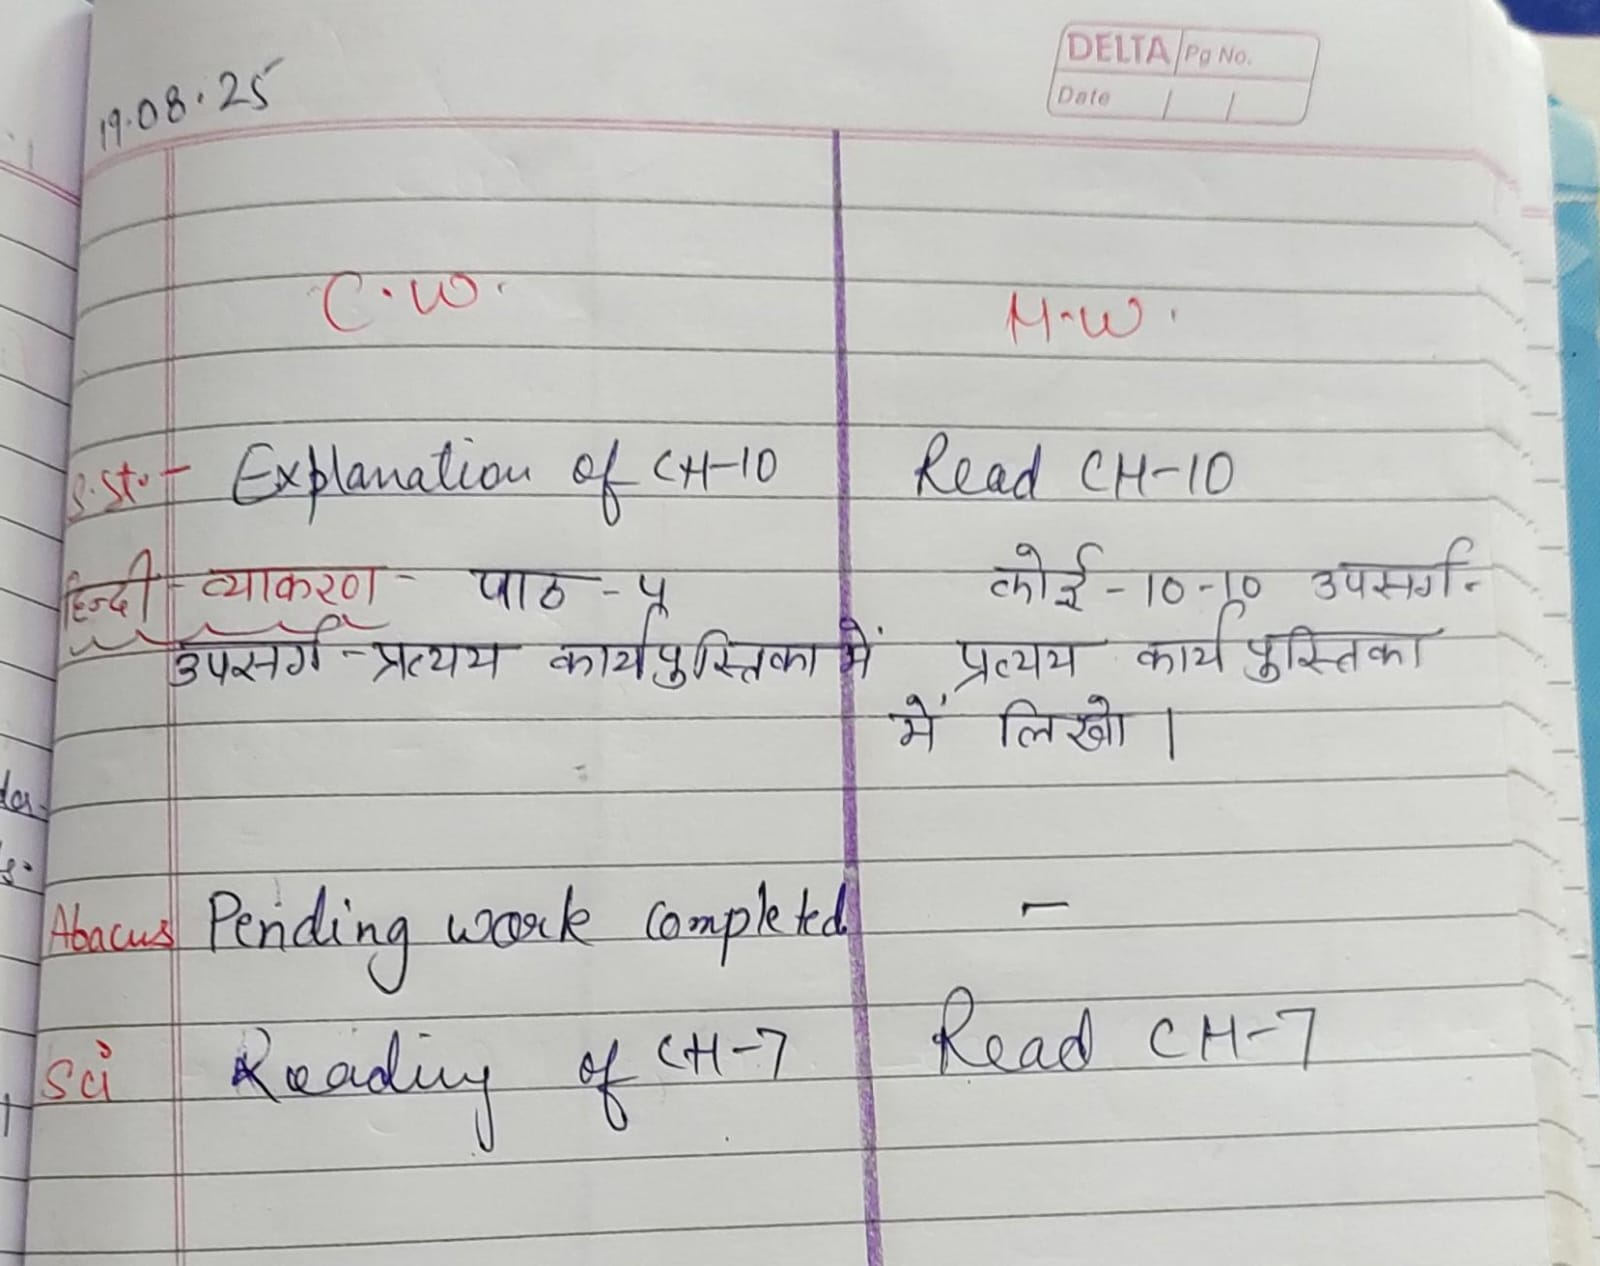 19.08.25
DELTA Pg No.
Date / /
C.W. H.W.
S.St. - Explanation of CH-10 Read CH-10
हिन्दी - व्याकरण - पाठ - ५ कोई - 10-10 उपसर्ग -
उपसर्ग - प्रत्यय कार्यपुस्तिका में प्रत्यय कार्य पुस्तिका
में लिखो ।
Abacus Pending work completed -
Sci Reading of CH-7 Read CH-7